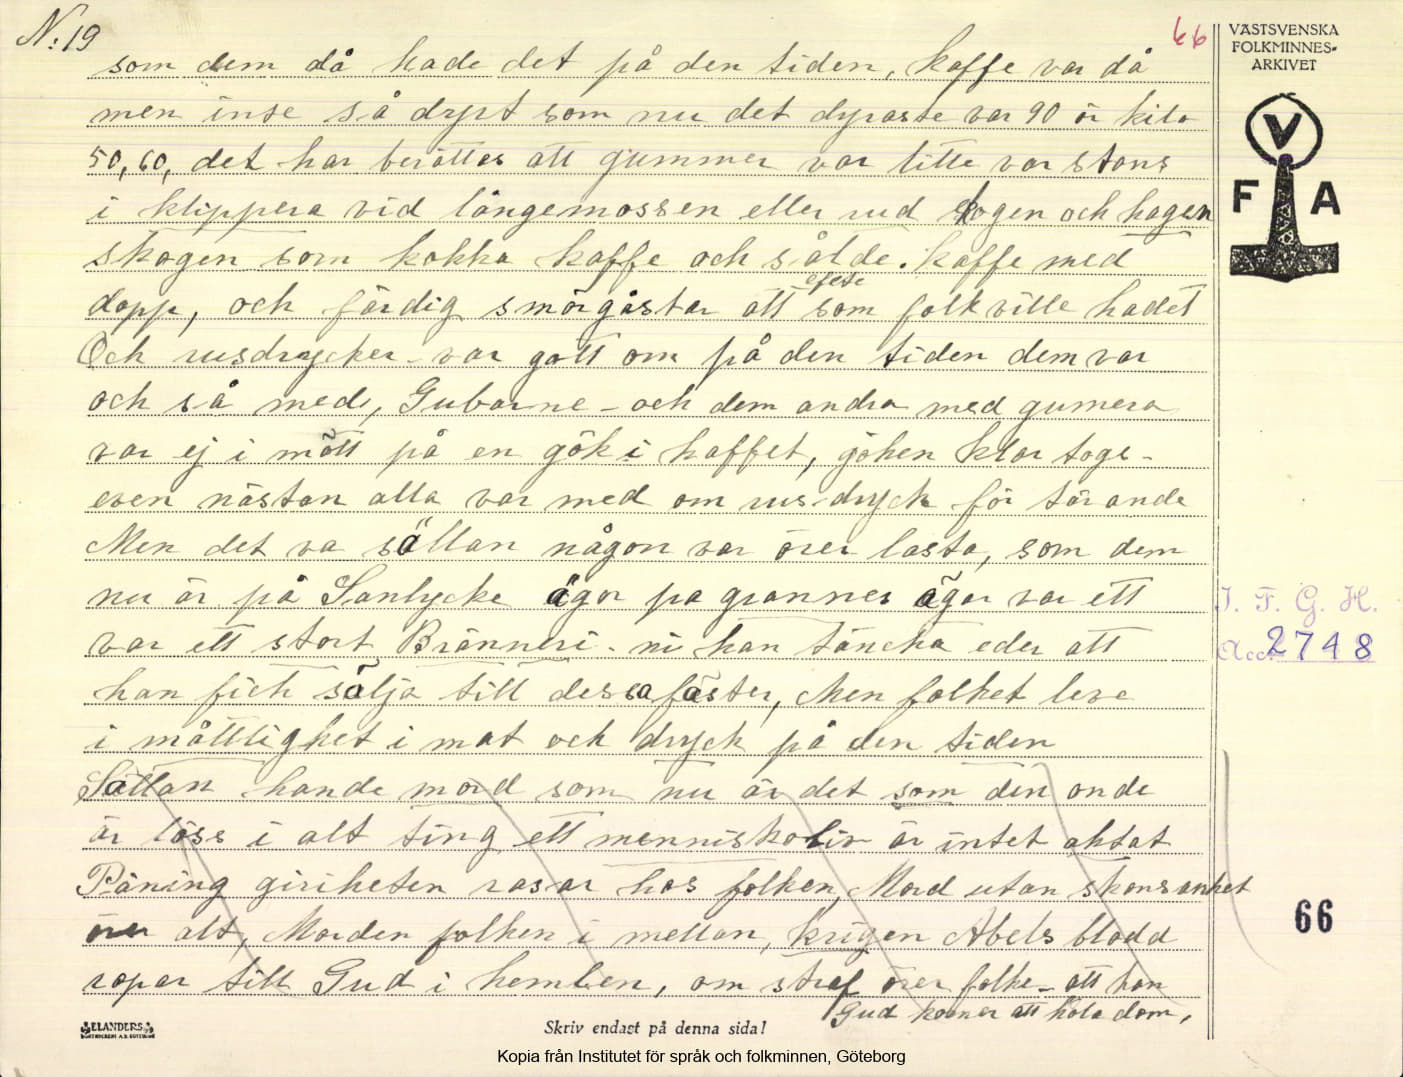 N: 19
66
VÄSTSVENSKA
FOLKMINNES-
ARKIVET
V
F A
som dem då hade det på den tiden, kaffe var då
men inte så dyrt som nu det dyraste var 90 ör kilo
50, 60, det har berättes att gummer var litte var stans
i klippera vid långemossen eller vid skogen och hagen
skogen som kokka kaffe och sålde. kaffe med
dopp, och färdig smörgåstar att efete som folk ville hadet
Och rusdrycker var gott om på den tiden dem var
och så med, Gubarne - och dem andra med gumera
var ej i mött på en gök i kaffet, göken klar togs -
even nästan alla var med om rusdryck för tärande
Men det va sällan någon var över lasta, som dem
nu är på Sanlycke ägor pa grannes ägor var ett
var ett stort Bränneri - ni kan täncka eder att
han fick sälja till dessa fäster, Men folket leve
i måttlighet i mat och dryck på den tiden
Sällan hande mord som nu är det som den onde
är löss i alt ting ett menniskoliv är intet aktat
Päning giriheten rasar hos folken, Mord utan skonsamhet
över alt, Morden folken i mellan, krigen Abels blodd
ropar till Gud i hemlen, om straf över folke - att han
Gud komer att hola dom,
I. F. G. H.
Acc. 2748
66
ELANDERS
Skriv endast på denna sida!
Kopia från Institutet för språk och folkminnen, Göteborg